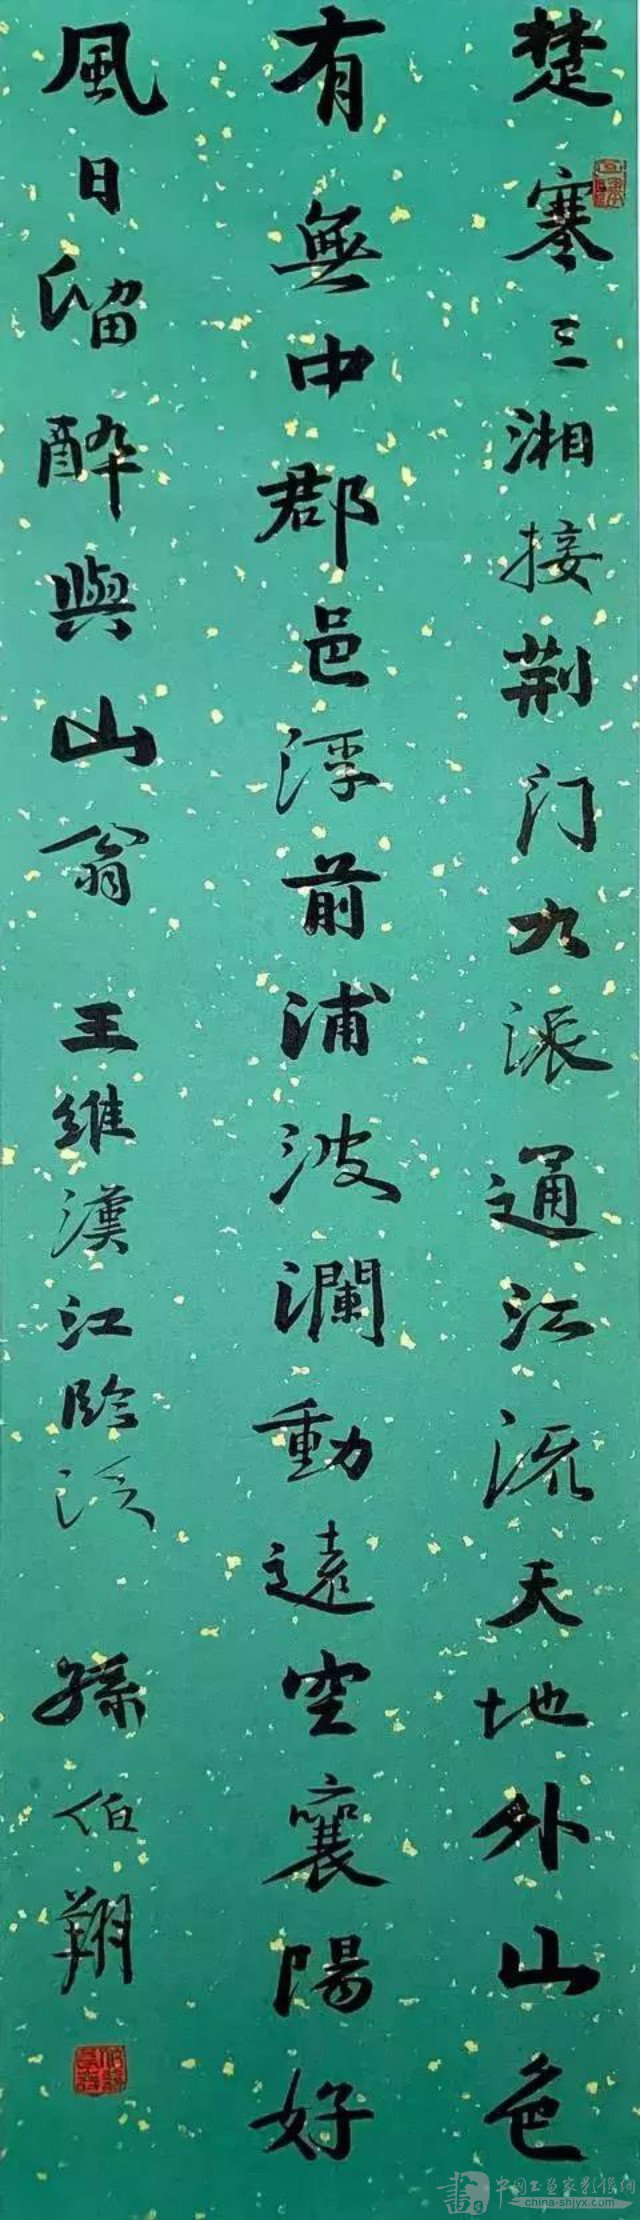 楚塞三湘接荆门九派通江流天地外山色
有無中郡邑浮前浦波瀾動遠空襄陽好
風日留醉與山翁 王維漢江臨泛 孫伯翔
中国书画家影像网
china-shjyx.com